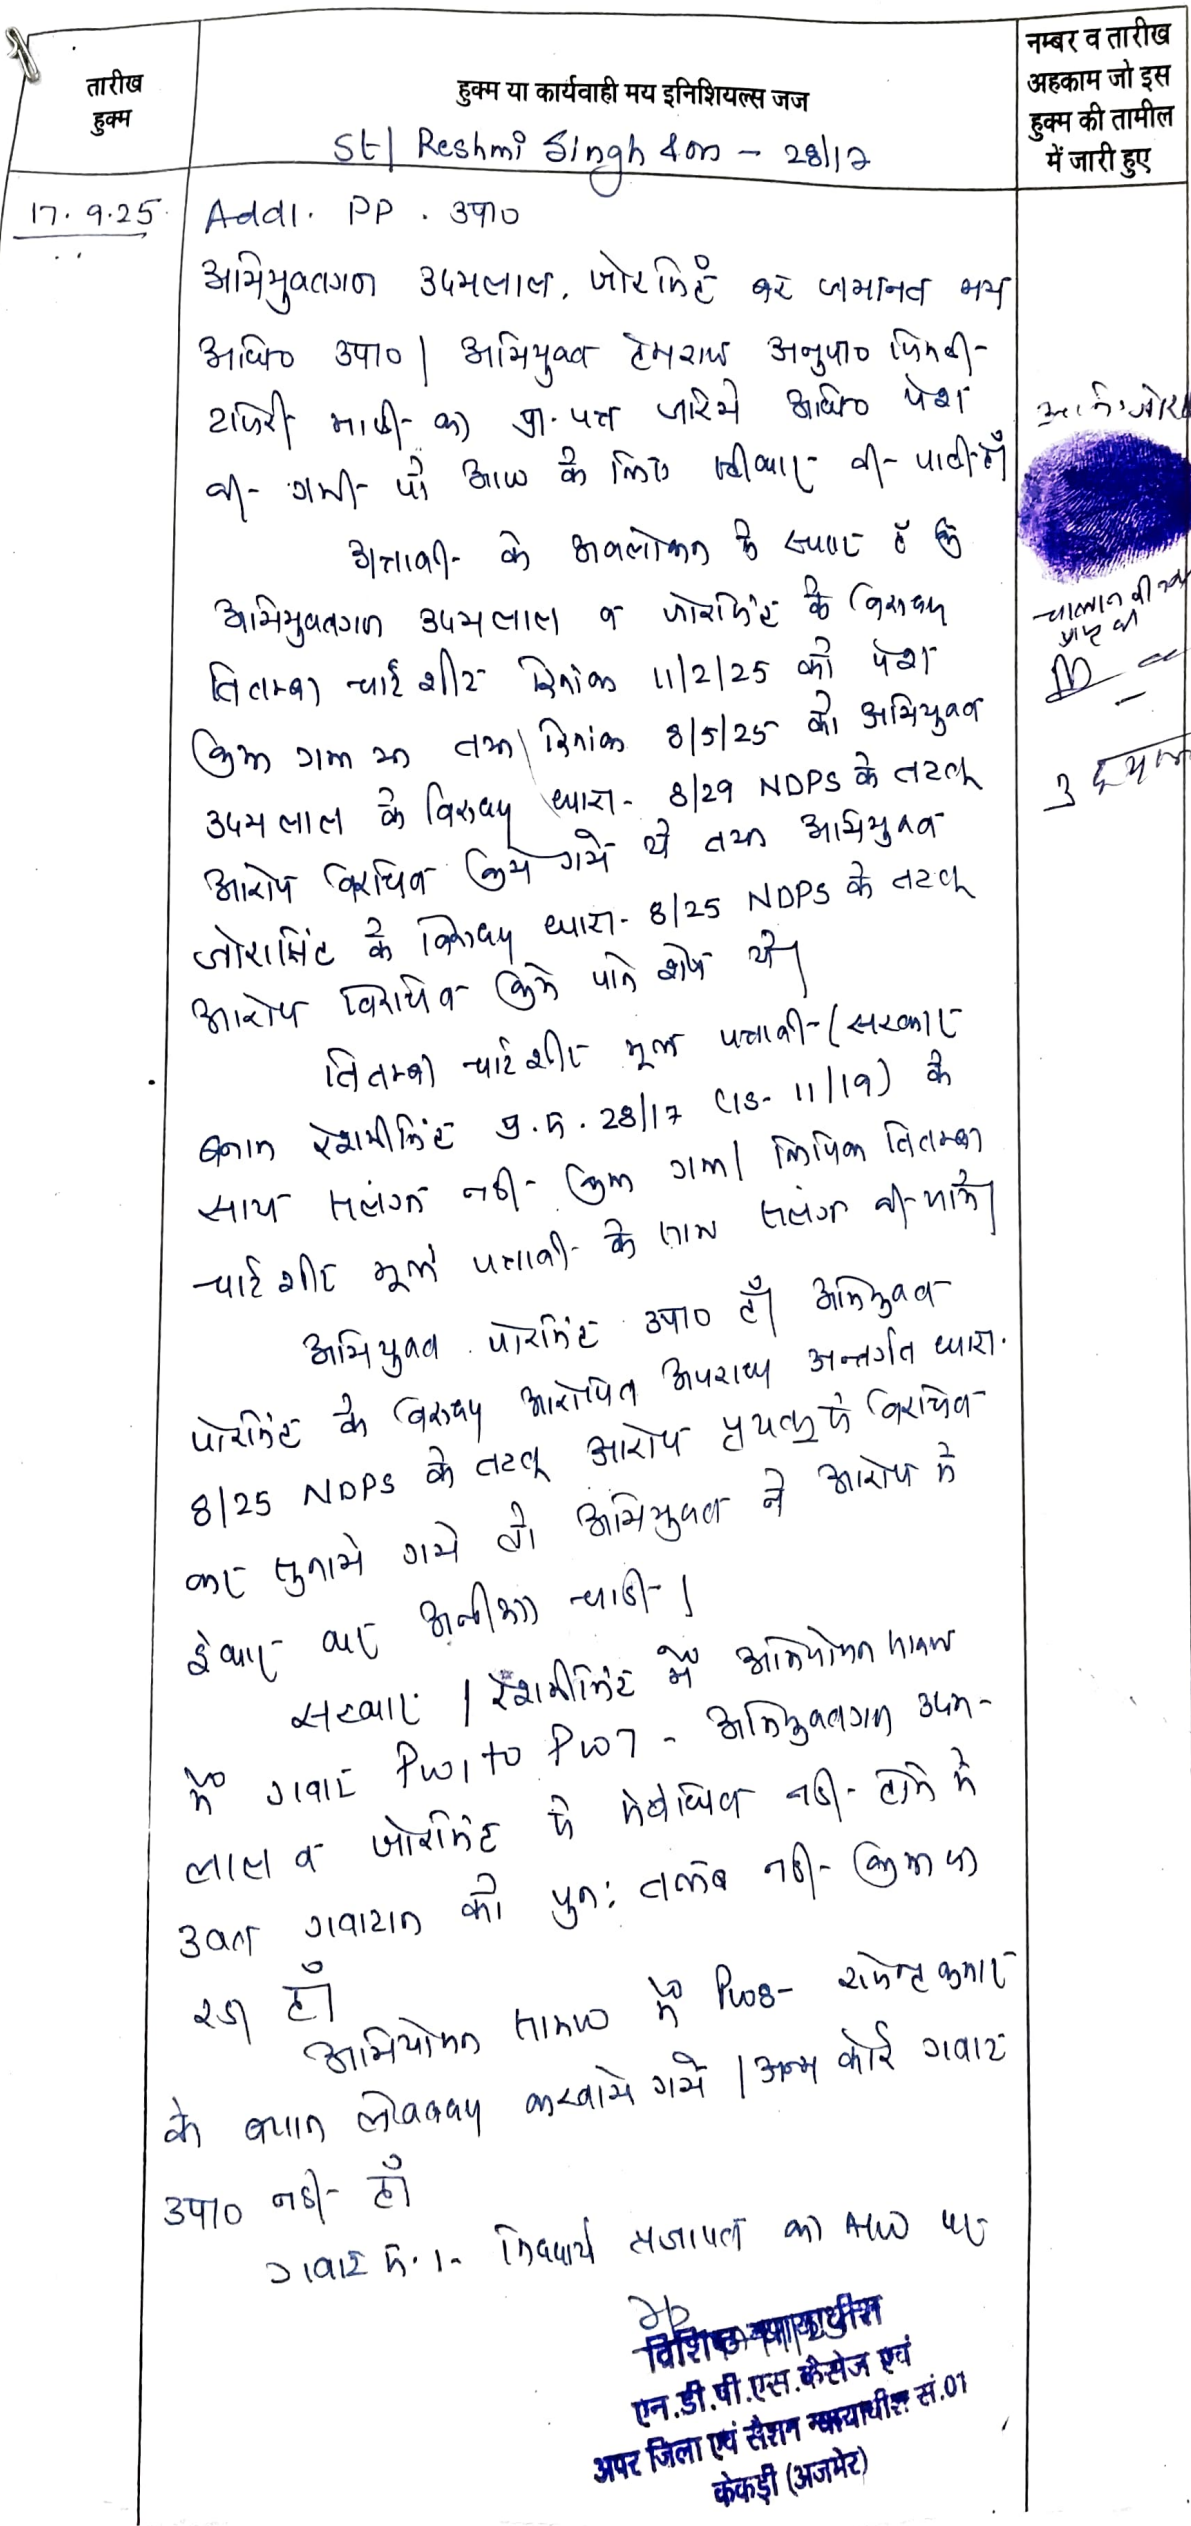 तारीख
हुक्म
हुक्म या कार्यवाही मय इनिशियल्स जज
नम्बर व तारीख
अहकाम जो इस
हुक्म की तामील
में जारी हुए
St/ Reshmi Singh & on - 28/17
17.9.25
Addl. PP. उप०
अभियुक्तगण उदमलाल, जोरसिंह बर जमानत मय
अधि० उप०। अभियुक्त हेमराज अनुप०
हाजिरी माफी का प्रा.पत्र जरिये अधि० पेश
की गयी जो आज के लिए स्वीकार की जाती है।
पत्रावली के अवलोकन से स्पष्ट है कि
अभियुक्तगण उदमलाल व जोरसिंह के विरुध्द
तितम्बा चार्ट शीट दिनांक 11/2/25 को पेश
किया गया था तथा दिनांक 8/5/25 को अभियुक्त
उदमलाल के विरुध्द धारा- 8/29 NDPS के तहत्
आरोप विरचित किये गये थे तथा अभियुक्त
जोरासिंह के विरुध्द धारा- 8/25 NDPS के तहत्
आरोप विरचित किये जाने शेष थे।
तितम्बा चार्ट शीट मूल पत्रावली (सरकार
बनाम रेशमीसिंह प्र.सं. 28/17 CIS- 11/19) के
साथ सलंग्न नही किया गया। लिपिक तितम्बा
चार्ट शीट मूल पत्रावली के साथ सलंग्न की जावे।
अभियुक्त जोरसिंह उप० है। अभियुक्त
जोरसिंह के विरुध्द आरोपित अपराध अन्तर्गत धारा
8/25 NDPS के तहत् आरोप पृथक् से विरचित
कर सुनाये गये तो अभियुक्त ने आरोप से
इंकार कर अन्वीक्षा चाही।
सरकार / रेशमीसिंह में अभियोजन साक्ष्य
में गवाह PW1 to PW7 - अभियुक्तगण उदम-
लाल व जोरसिंह से संबंधित नही होने से
उक्त गवाहान को पुन: तलब नही किया जा
रहा है।
अभियोजन साक्ष्य में PW8- राजेन्द्र कुमार
के बयान लेखबध्द करवाये गये। अन्य कोई गवाह
उप० नही है।
गवाह सं.1- सिध्दार्थ प्रजापत का AW पर
चालान की नकल
प्राप्त की
उदमलाल
विशिष्ट न्यायाधीश
एन.डी.पी.एस.केसेज एवं
अपर जिला एवं सैशन न्यायाधीश सं.01
केकड़ी (अजमेर)